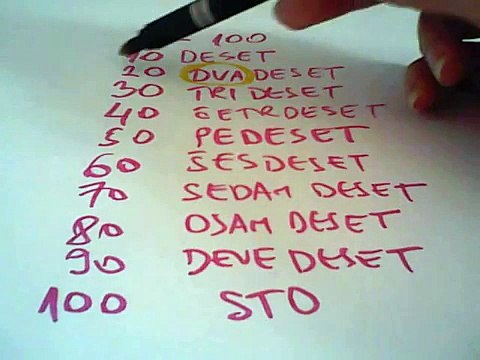 - 100
10 DESET
20 DVADESET
30 TRI DESET
40 ČETRDESET
50 PEDESET
60 ŠESDESET
70 SEDAM DESET
80 OSAM DESET
90 DEVEDESET
100 STO